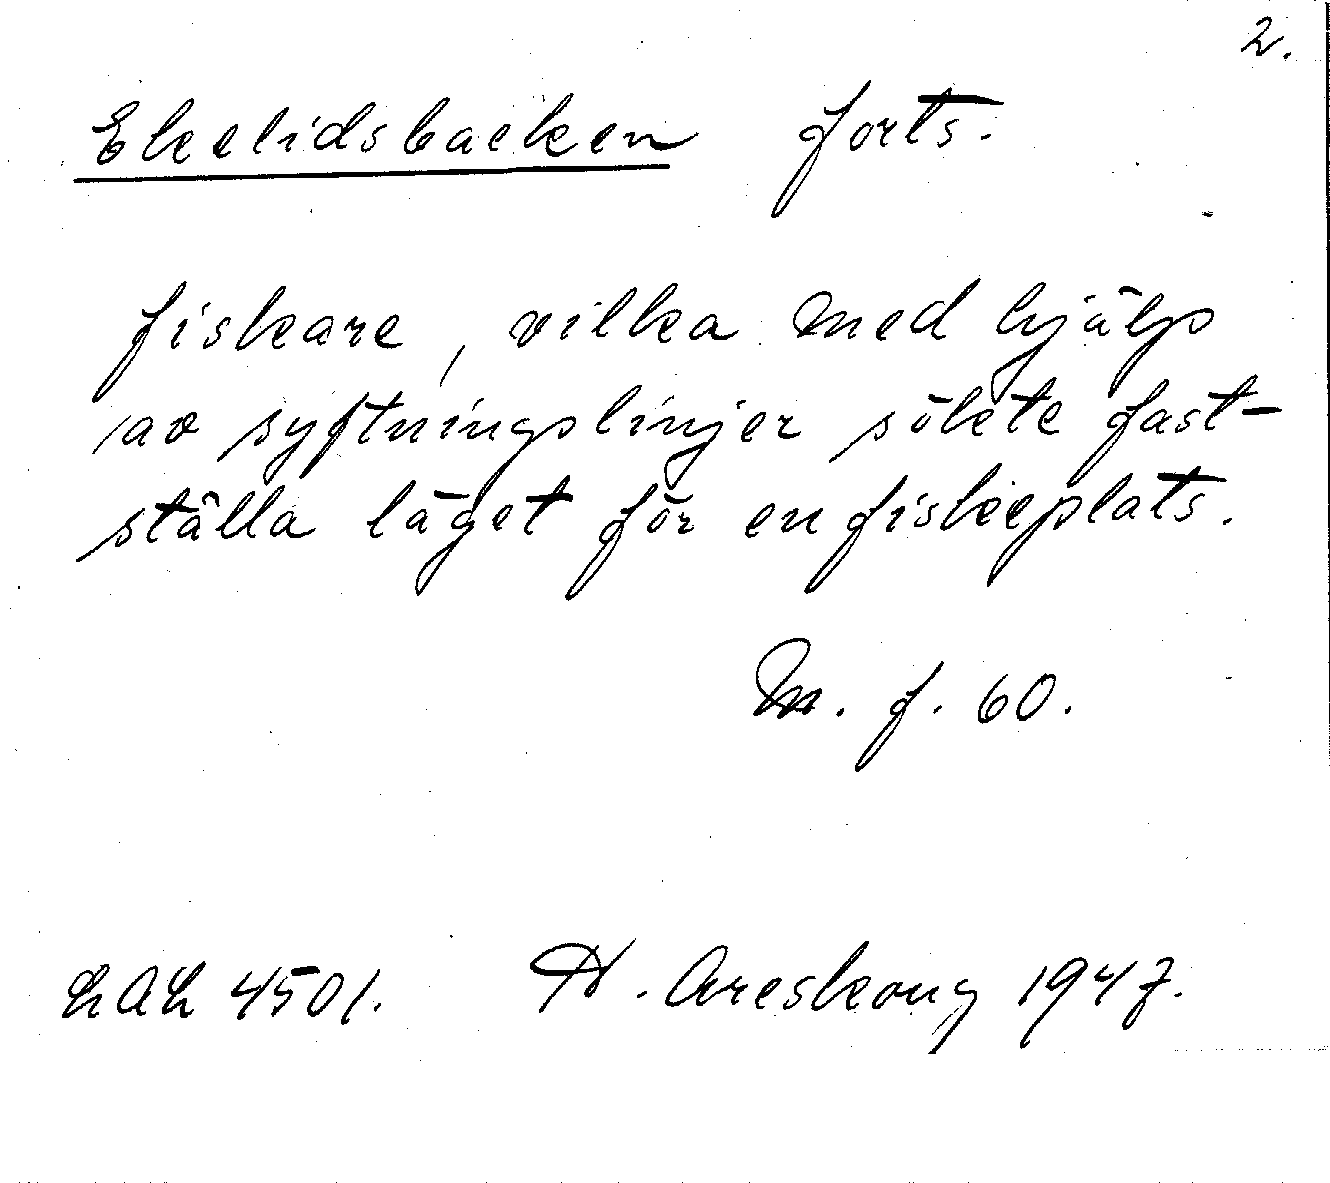 2.
Ekelidsbacken forts.
fiskare, vilka med hjälp
av syftningslinjer sökte fast-
ställa läget för en fiskeplats.
M. f. 60.
LAL 4501. H. Areskoug 1947.